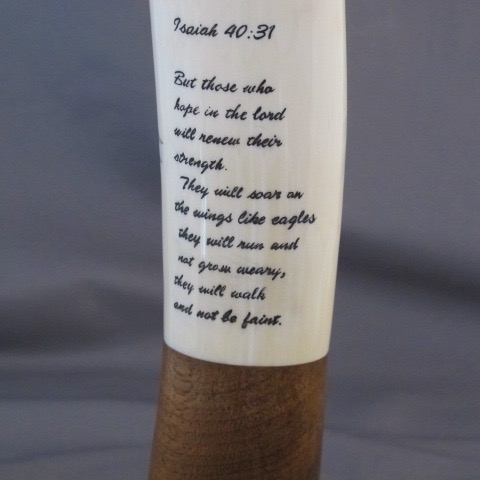 Isaiah 40:31
But those who
hope in the lord
will renew their
strength.
They will soar on
the wings like eagles
they will run and
not grow weary,
they will walk
and not be faint.